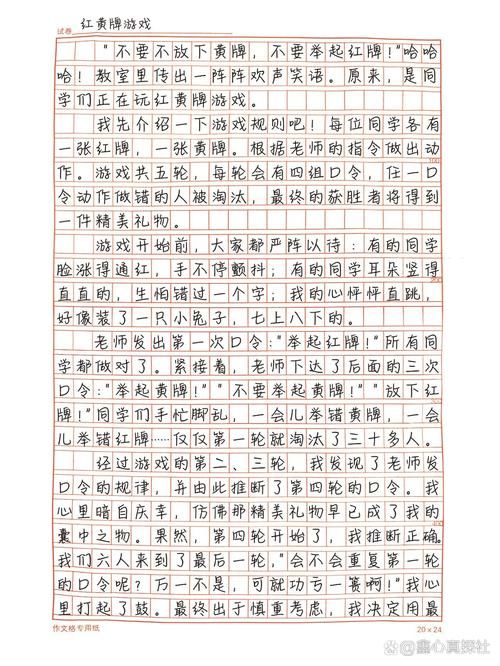 试卷 红黄牌游戏
"不要不放下黄牌,不要举起红牌!"哈哈
哈!教室里传出一阵阵欢声笑语。原来,是同
学们正在玩红黄牌游戏。
我先介绍一下游戏规则吧!每位同学各有
一张红牌,一张黄牌。根据老师的指令做出动
作。游戏共五轮,每轮会有四组口令,任一口
100
令动作做错的人被淘汰,最终的获胜者将得到
一件精美礼物。
游戏开始前,大家都严阵以待:有的同学
脸涨得通红,手不停颤抖;有的同学耳朵竖得
200
直直的,生怕错过一个字;我的心怦怦直跳,
好像装了一只小兔子,七上八下的。
老师发出第一次口令:"举起红牌!"所有同
学都做对了。紧接着,老师下达了后面的三次
口令:"举起黄牌!""不要举起黄牌!""放下红
牌!"同学们手忙脚乱,一会儿举错黄牌,一会
儿举错红牌……仅仅第一轮就淘汰了三十多人。
经过游戏的第二、三轮,我发现了老师发
口令的规律,并由此推断了第四轮的口令。我
心里暗自庆幸,仿佛那精美礼物早已成了我的
400
囊中之物。果然,第四轮开始了,我推断正确。
我们六人来到了最后一轮,"会不会重复第一轮
的口令呢?万一不是,可就功亏一篑啊!"我心
里打起了鼓。最终出于慎重考虑,我决定用最
作文格专用纸 20×24
鑫心真探社